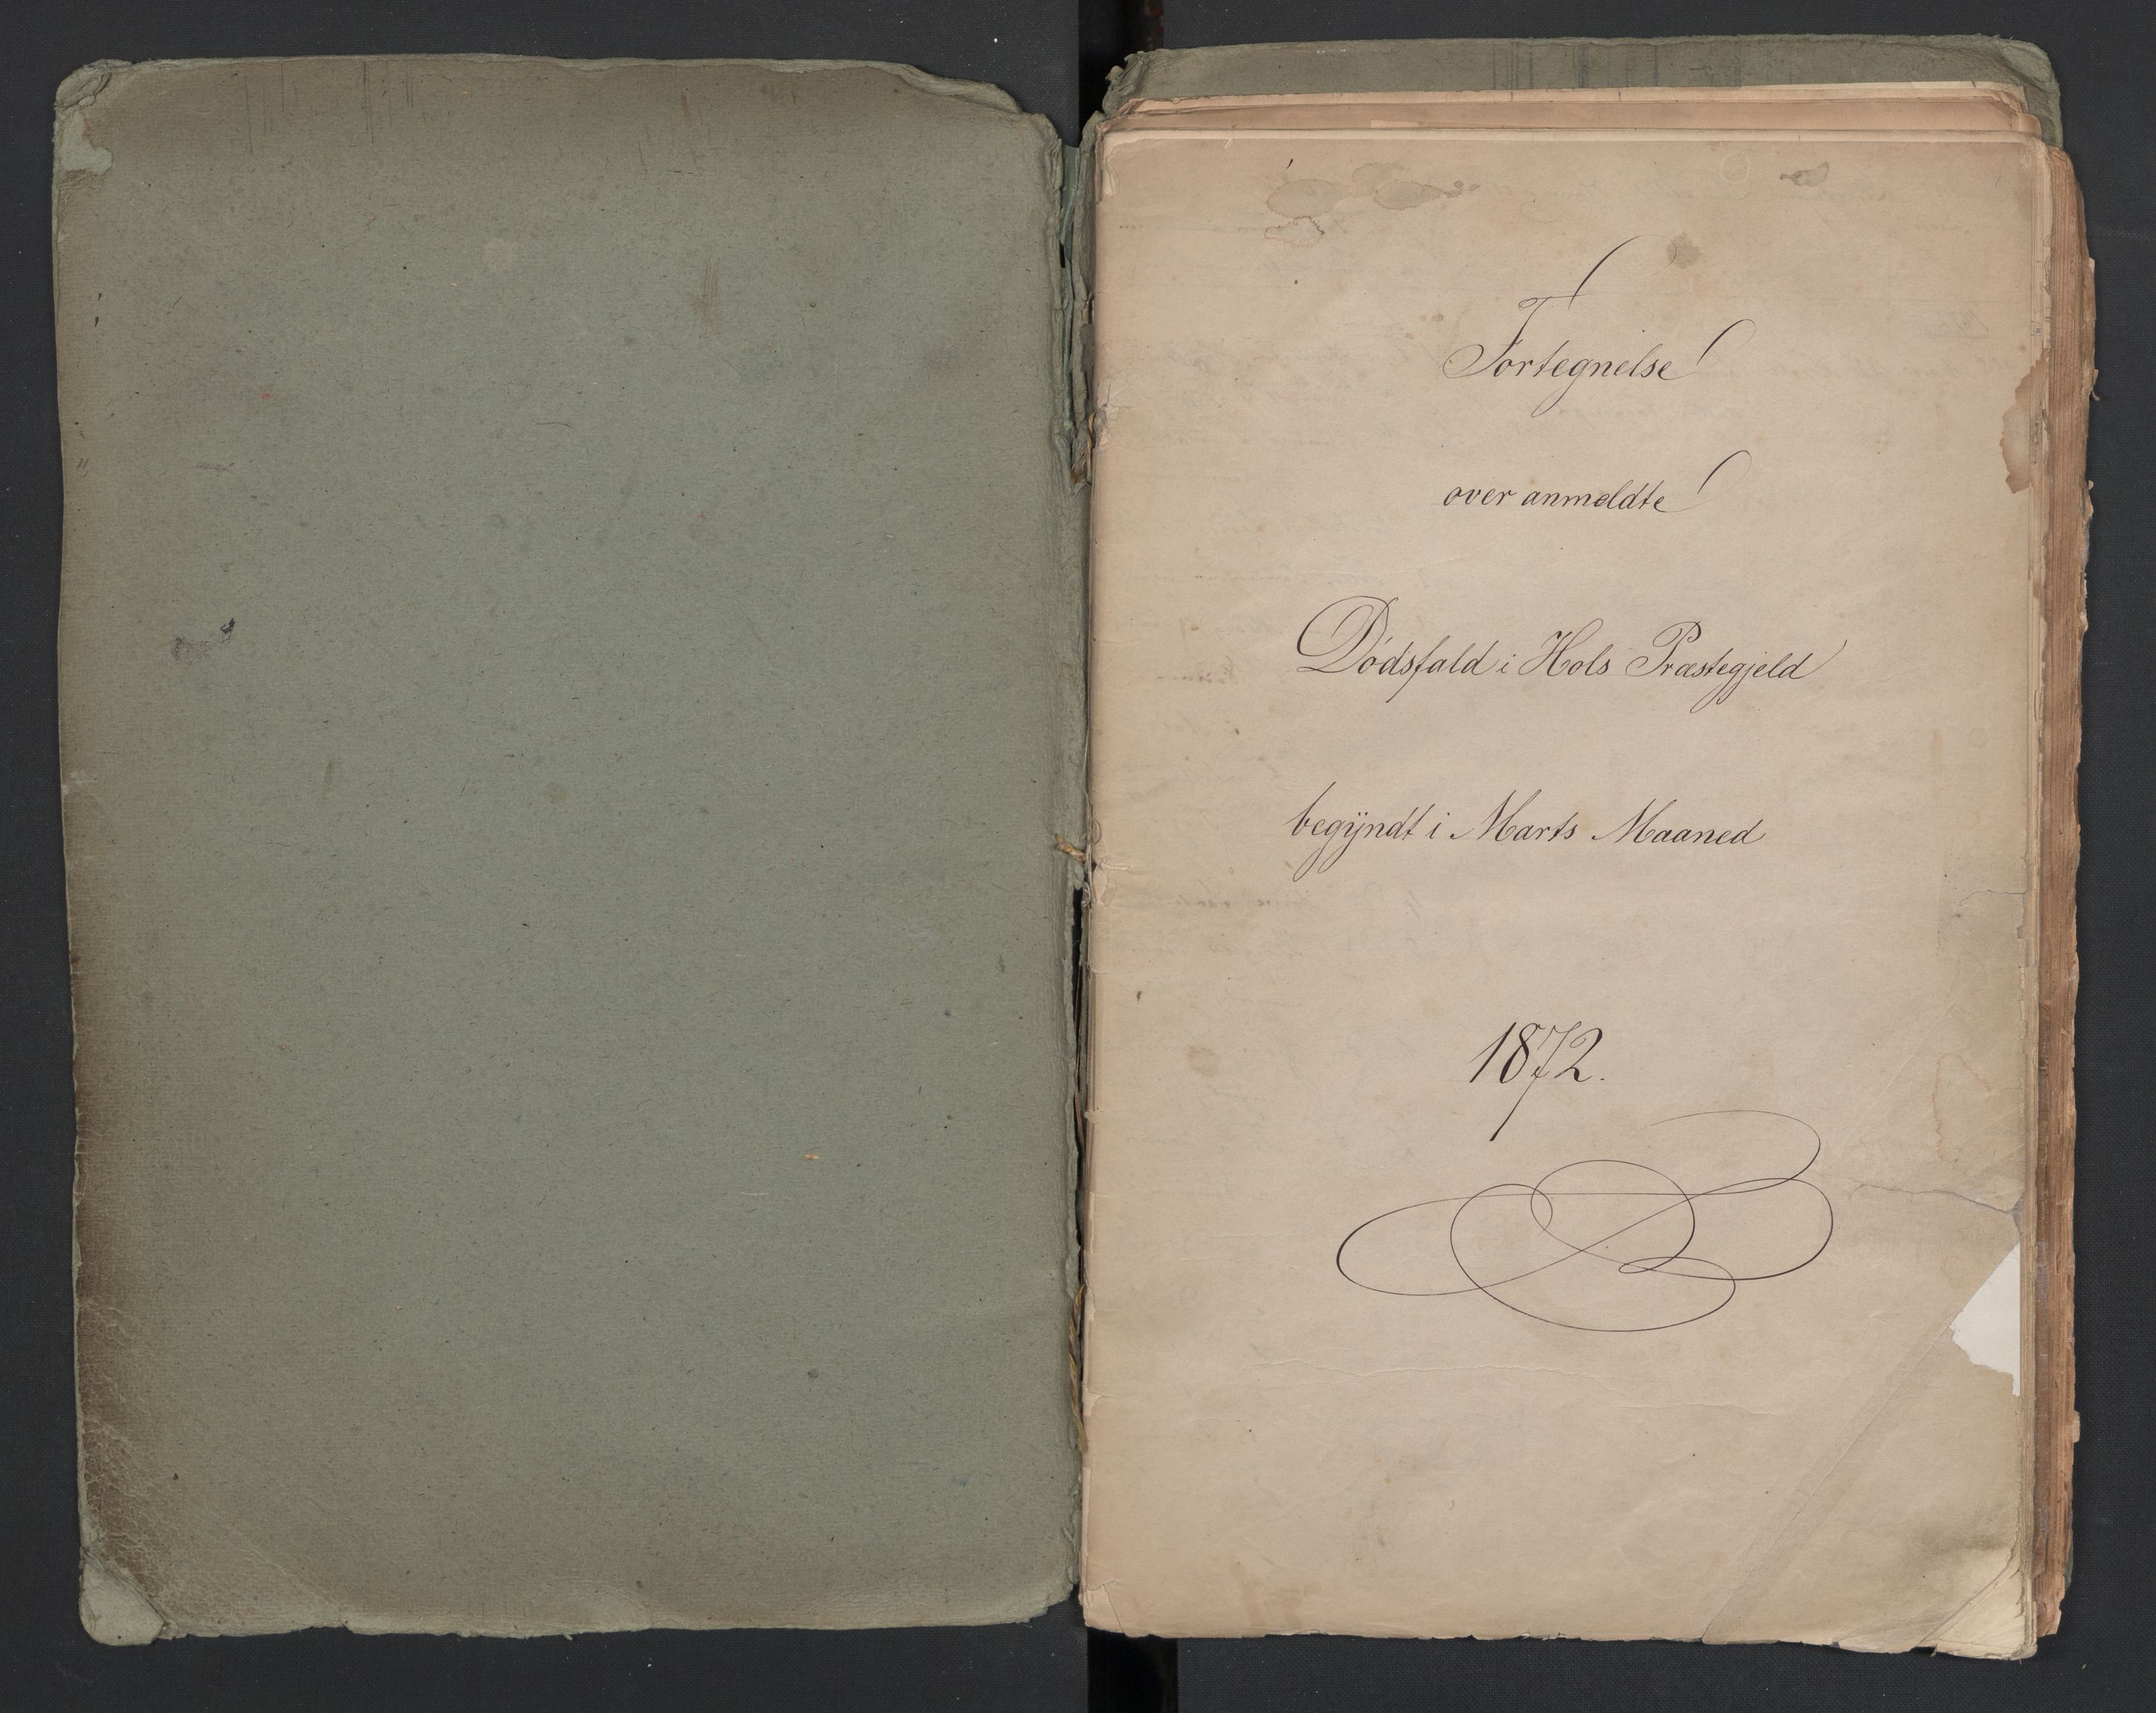 Fortegnelse
over anmeldte
Dödsfald i Hols Præstegjeld
begÿndt i Marts Maaned
1872.